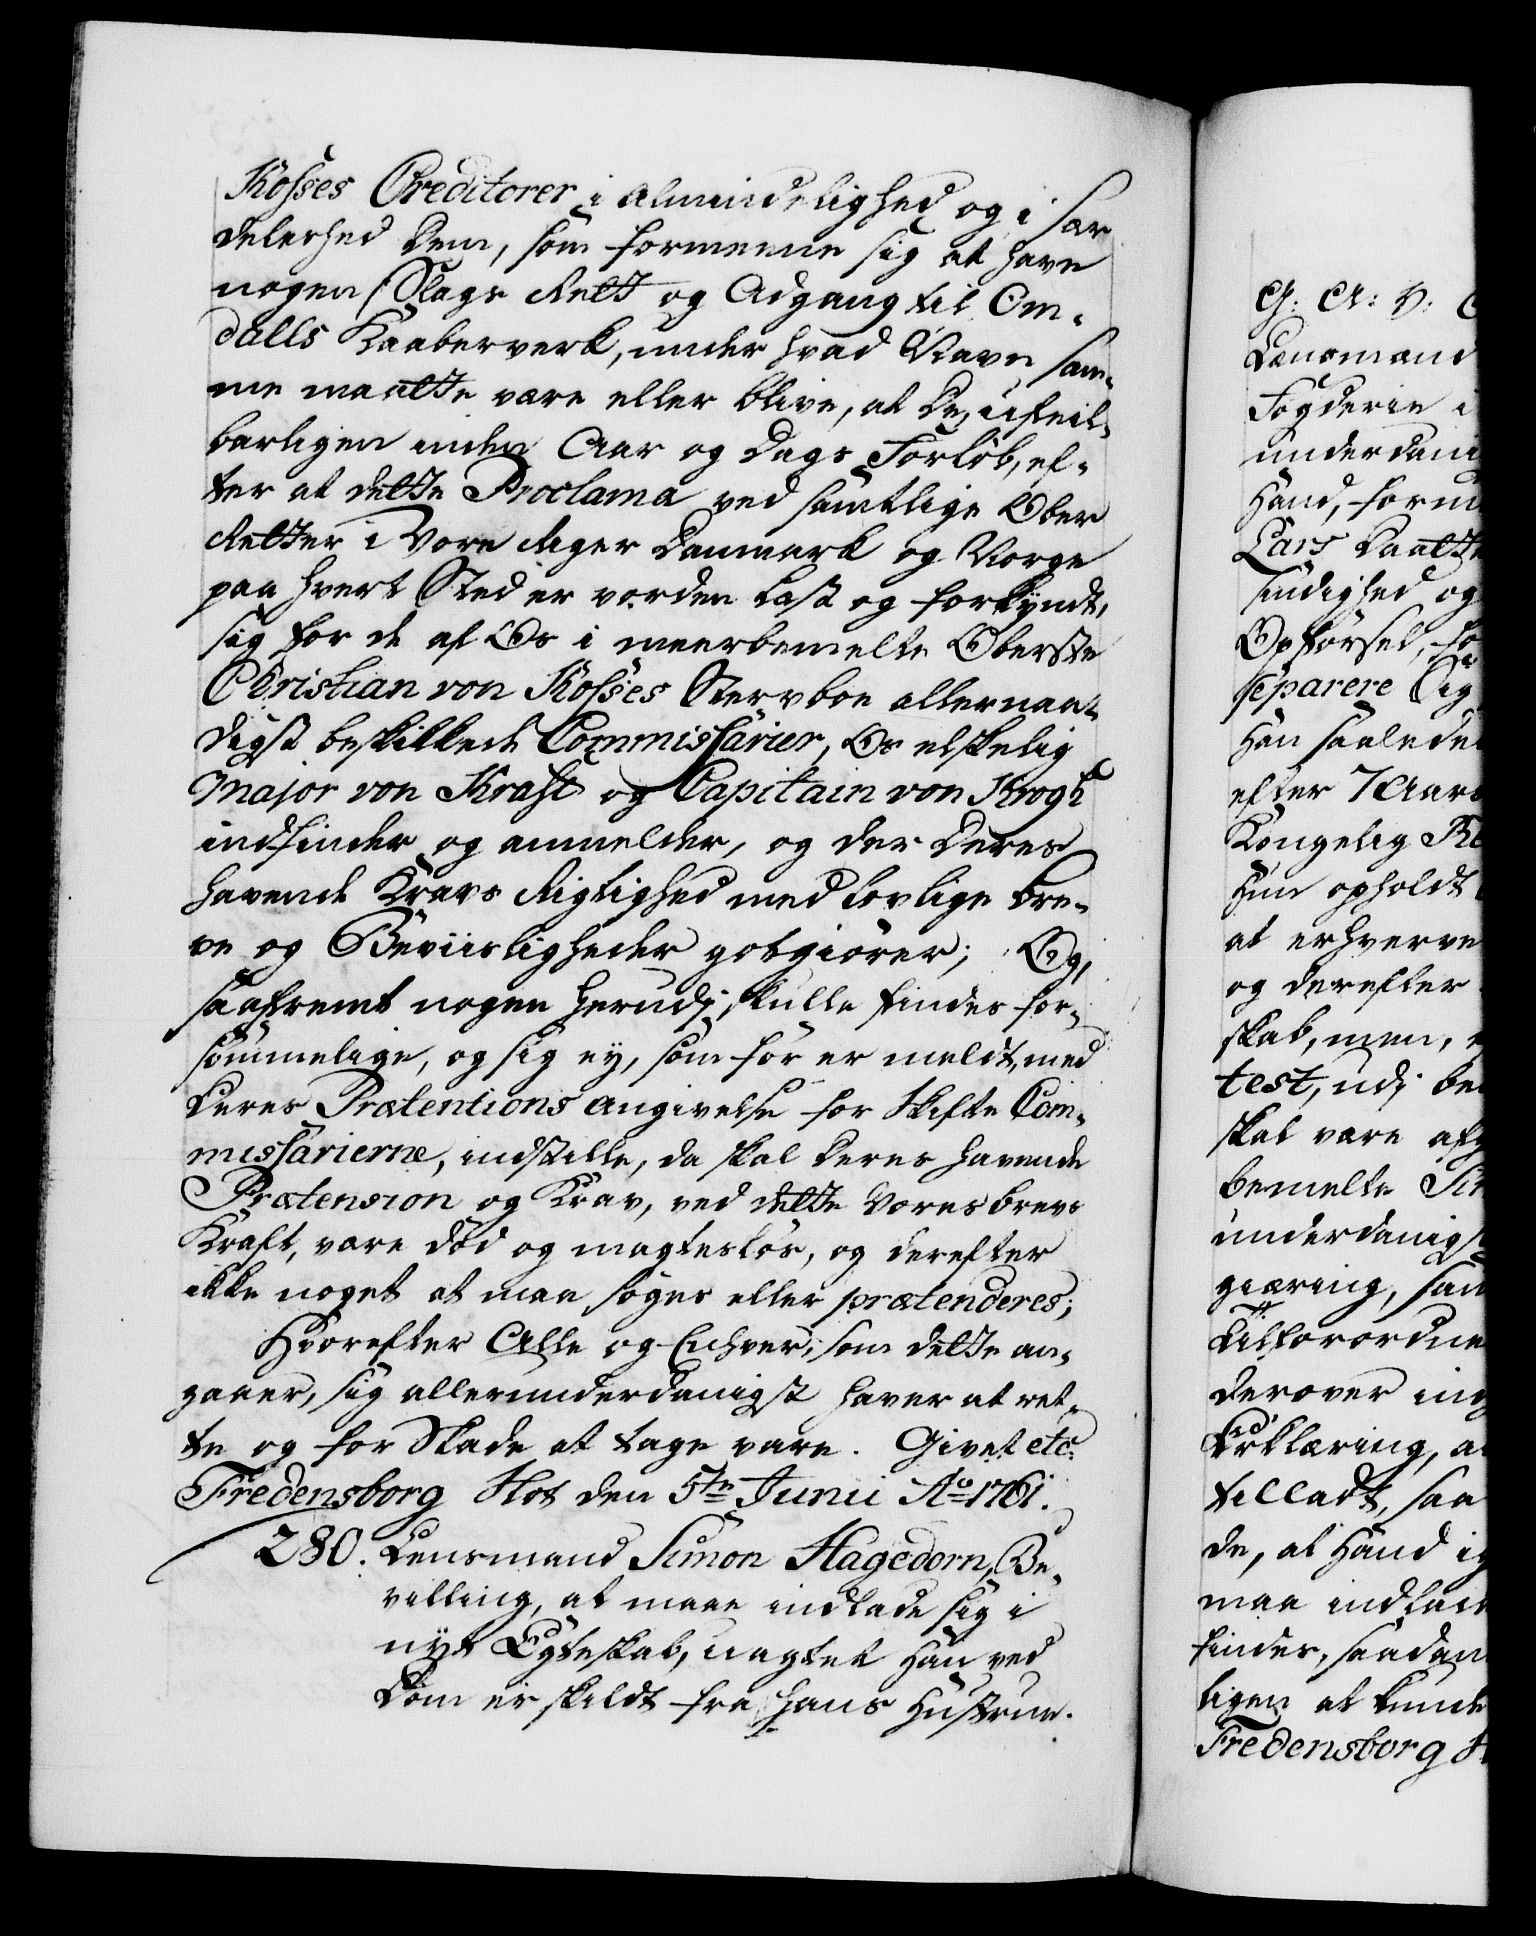 Kosses Creditorer i Almindelighed og i sær
delished dem, som formeene sig at have
nogen Slags Rett og Adgang til Om-
dalls Kaaberverk, under hvad Navn sam-
me maatte være eller blive, at De, ufeil-
barligen inden Aar og Dags Forløb, ef-
ter at dette Proclama ved samtlige Ober
Retter i Vore Riger Danmark og Norge
paa hvert Sted er vorden læst og forkyndt,
sig for de af Os i meerbemelte Oberste
Christian von Kosses Sterboe allernaa-
digst beskikkede Commissarier, Os elskelig
Major von Kraft og Capitain von Krogh
indfinder og anmelder, og der Deres
havende Kravs Rigtighed med lovlige Bre-
ve og Beviisligheder gotgiører; Og,
saafremt nogen herudj skulle findes for-
sømmelige, og sig ey, som før er meldt, med
Deres Prætentions Angivelse for Skifte Com-
missarierne, indstille, da skal Deres havende
Prætension og Krav, ved dette Vores Brevs
Kraft, være død og magtesløs, og derefter
ikke noget at maa søges eller prætenderes;
Hvorefter Alle og Enhver, som dette an-
gaaer, sig allerunderdanigst haver at ret-
te og for Skade at tage vare. Givet etc.
Fredensborg Slot den 5te Junii Ao 1761.
280. Lensmand Simon Hagedorn, Be-
villing, at maae indlade sig i
nyt Egteskab, uagtet Han ved
Dom er skildt fra hans Hustrue.
G: A: V:
Lensmand
Fogderie i
underdani
Haand, form
Lars Daatte
sindighed og
Opførsel, fo
separere Sig
Han saalede
efter 7 Aar
Kongelig Re
Hun opholdt
at erhverve
og derefter
skab, men,
test, udj be
skal være af
bemelte Sim
underdanigs
giæring, sam
Tilforordne
derover ind
Erklæring, a
tilladt, saa
de, at Hand ig
maa indlad
finder, saadan
ligen at kunde
Fredensborg Sl